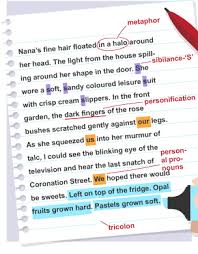 metaphor
Nana's fine hair floated in a halo around
her head. The light from the house spill-
ing around her shape in the door. She
sibilance-'S'
wore a soft, sandy coloured leisure suit
with crisp cream slippers. In the front
personification
garden, the dark fingers of the rose
bushes scratched gently against our legs.
As she squeezed us into her murmur of
talc, I could see the blinking eye of the
television and hear the last snatch of
person-
al pro-
nouns
Coronation Street. We hoped there would
be sweets. Left on top of the fridge. Opal
fruits grown hard. Pastels grown soft.
tricolon